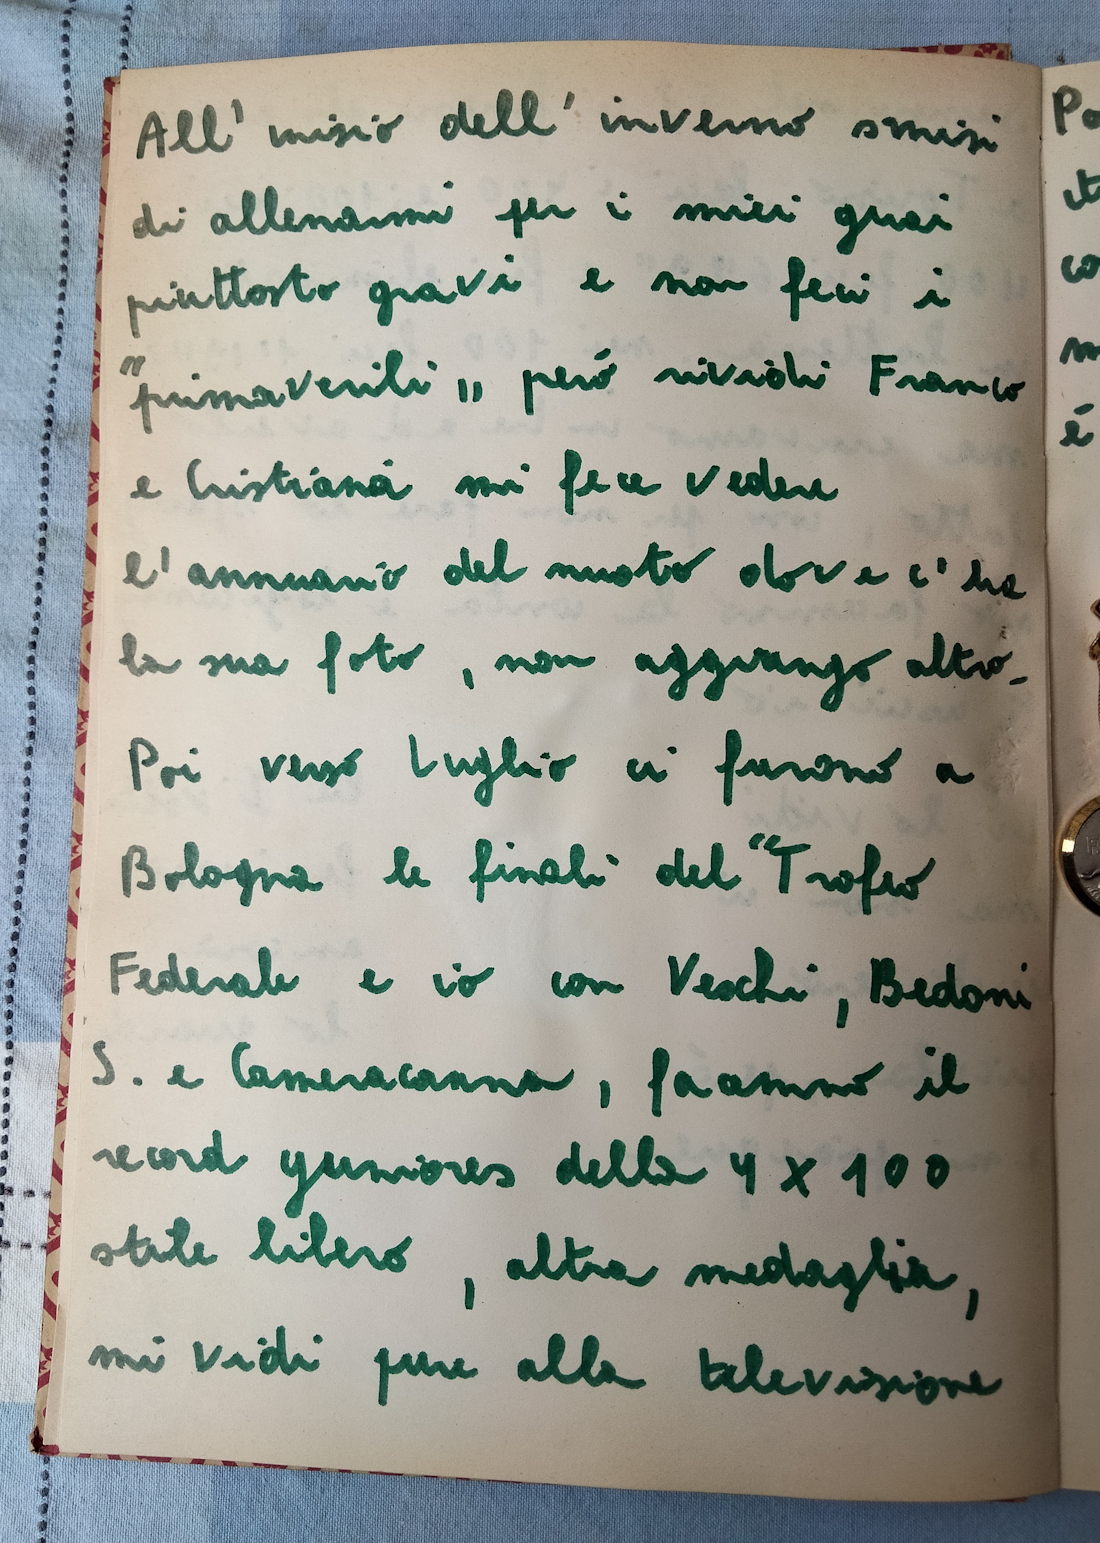 All' inisio dell' inverno smisi
di allenarmi per i miei guai
piuttosto gravi e non feci i
"primaverili" però rividi Franco
e Cristiana mi fece vedere
l'annuario del nuoto dove c'ha
la sua foto, non aggiungo altro.
Poi verso Luglio ci furono a
Bologna le finali del "Trofeo
Federale e io con Veschi, Bedoni
S. e Cameracanna, facammo il
record yuniores della 4 X 100
stile libero, altra medaglia,
mi vidi pure alla televisione
Po
it
co
m
é